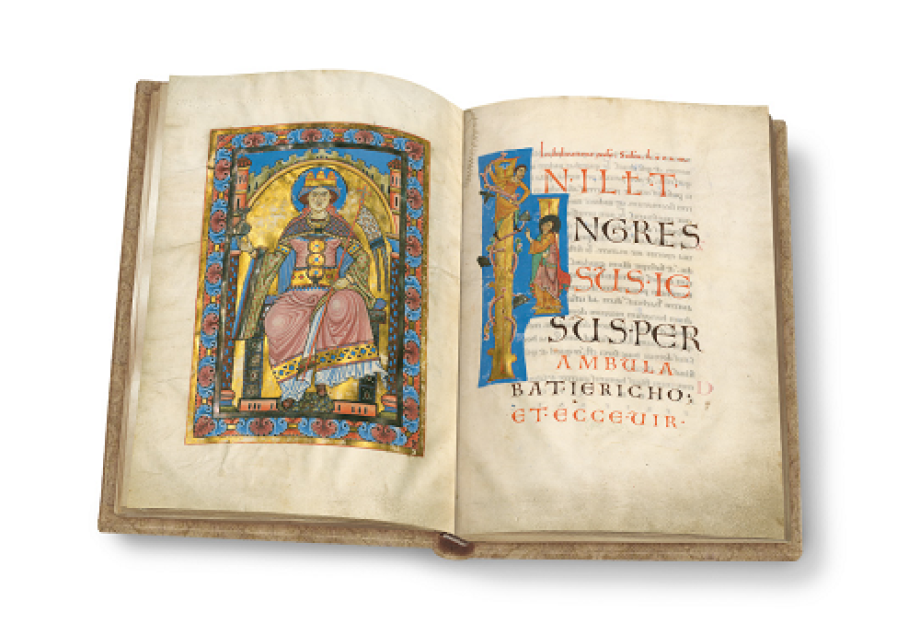 N·ILET·
NGRES
SUS·IE
SUS·PER
AMBULA
BAT·IERICHO;
ET·ECCE·UIR·